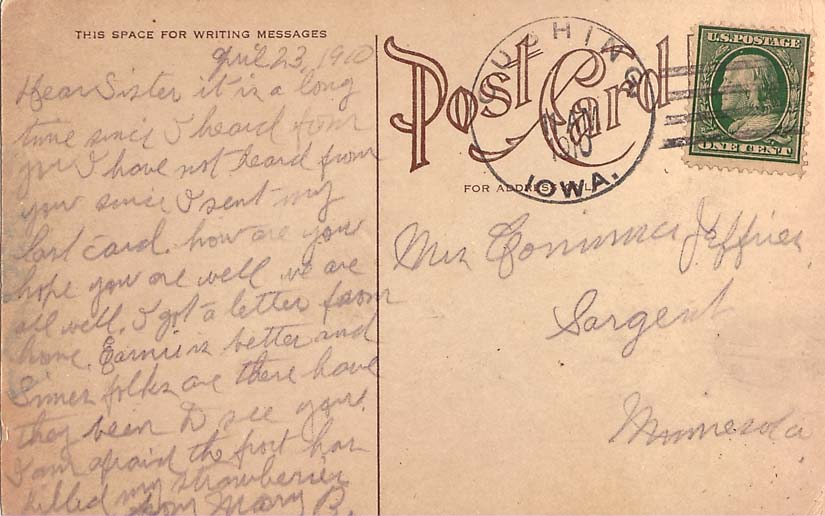 THIS SPACE FOR WRITING MESSAGES
April 23, 1910
Dear Sister it is a long
time since I heard from
you I have not heard from
you since I sent my
last card. how are you
hope you are well we are
all well. I got a letter from
home. is better and
folks are there have
they been to see you.
I am afraid the frost has
killed my strawberries
from Mary B.
Post Card
CUSHING
1910
IOWA.
FOR ADDRESS
U.S. POSTAGE
ONE CENT
Mrs Jeffries
Sargent
Minnesota